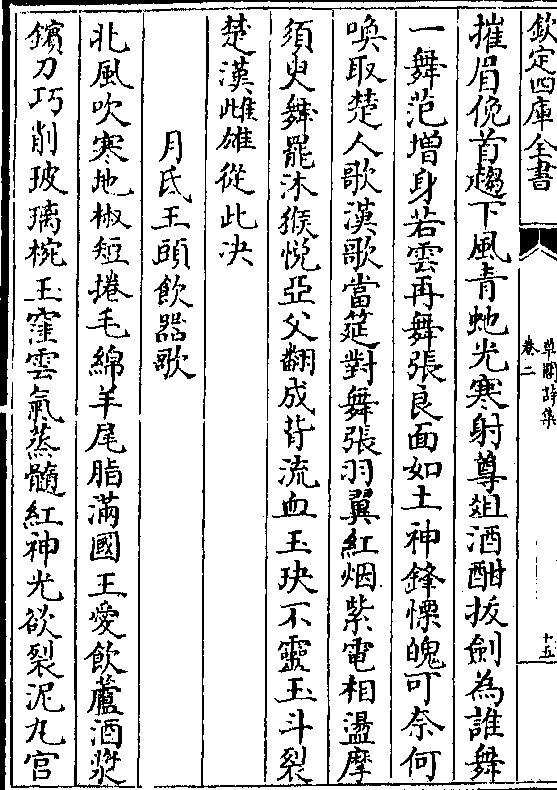 欽定四庫全書
草閣詩集
卷二
十五
摧眉俛首趨下風青虵光寒射尊俎酒酣拔劍為誰舞
一舞范增身若雲再舞張良面如土神鋒慄魄可奈何
喚取楚人歌漢歌當筵對舞張羽翼紅烟紫電相盪摩
須臾舞罷沐猴悅亞父翻成背流血玉玦不靈玉斗裂
楚漢雌雄從此决
月氏王頭飲器歌
北風吹寒地椒短捲毛綿羊尾脂滿國王愛飲蘆酒漿
鑌刀巧削玻璃椀玉窪雲氣蒸髓紅神光欲裂泥丸宫